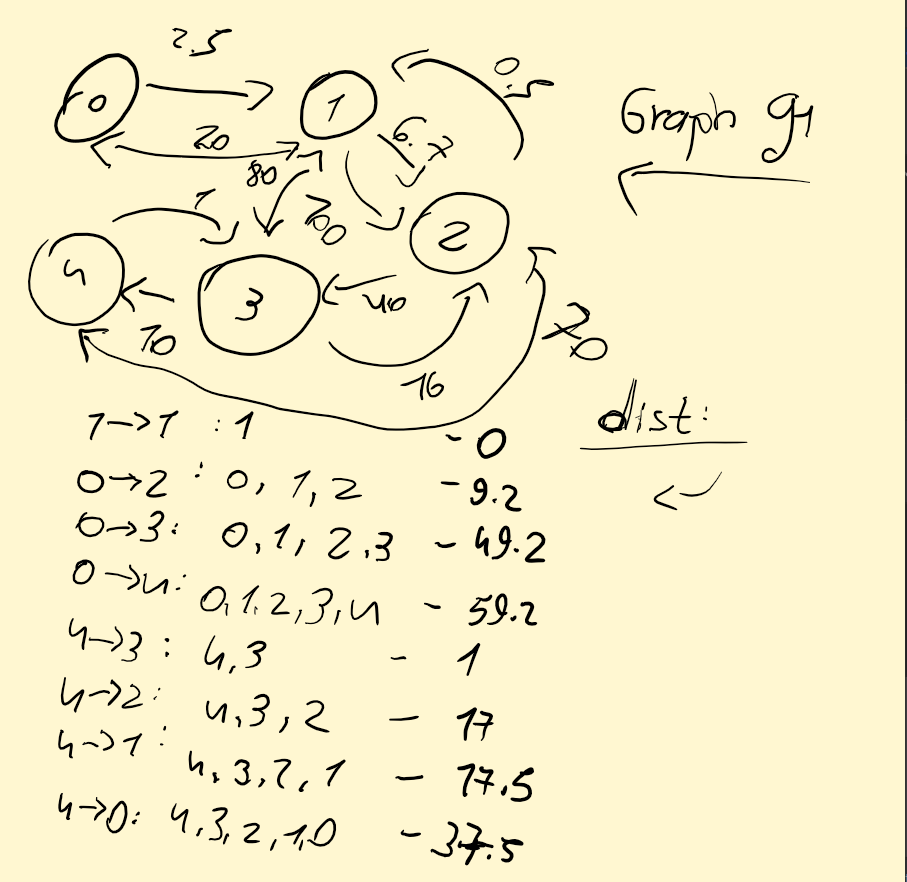 2.5
0
1
0.5
Graph g1
20
6.7
80
100
1
2
4
3
40
10
70
16
dist:
1->1 : 1 - 0
0->2 : 0, 1, 2 - 9.2
0->3: 0, 1, 2, 3 - 49.2
0->4: 0, 1, 2, 3, 4 - 59.2
4->3 : 4, 3 - 1
4->2: 4, 3, 2 - 17
4->1 : 4, 3, 2, 1 - 17.5
4->0: 4, 3, 2, 1, 0 - 37.5